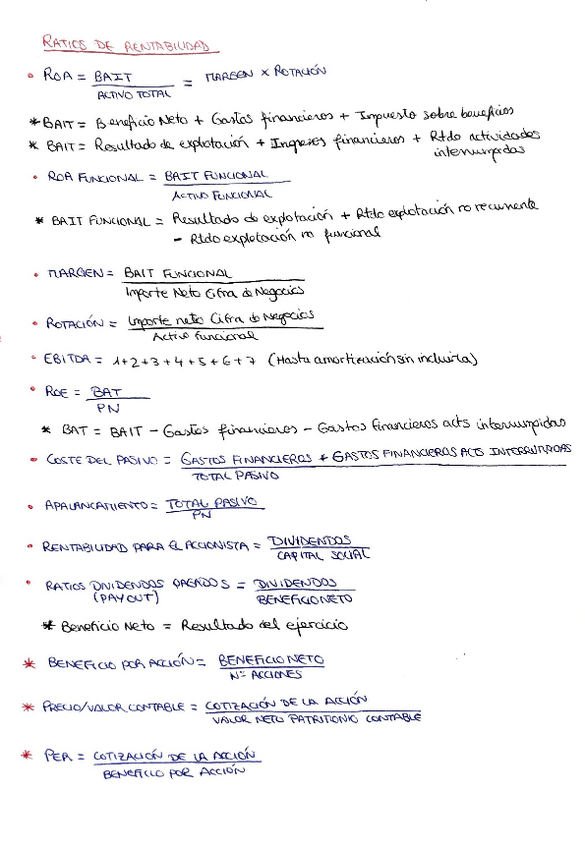 RATIOS DE RENTABILIDAD
• ROA = BAIT / ACTIVO TOTAL = MARGEN x ROTACIÓN
* BAIT = Beneficio Neto + Gastos financieros + Impuesto sobre beneficios
* BAIT = Resultado de explotación + Ingresos financieros + Rtdo actividades
interrumpidas
• ROA FUNCIONAL = BAIT FUNCIONAL / ACTIVO FUNCIONAL
* BAIT FUNCIONAL = Resultado de explotación + Rtdo explotación no recurrente
- Rtdo explotación no funcional
• MARGEN = BAIT FUNCIONAL / Importe Neto Cifra de Negocios
• ROTACIÓN = Importe neto Cifra de Negocios / Activo Funcional
• EBITDA = 1+2+3+4+5+6+7 (Hasta amortización sin incluirla)
• ROE = BAT / PN
* BAT = BAIT - Gastos financieros - Gastos Financieros acts interrumpidas
• COSTE DEL PASIVO = GASTOS FINANCIEROS + GASTOS FINANCIEROS ACTS INTERRUMPIDAS / TOTAL PASIVO
• APALANCAMIENTO = TOTAL PASIVO / PN
• RENTABILIDAD PARA EL ACCIONISTA = DIVIDENDOS / CAPITAL SOCIAL
• RATIOS DIVIDENDOS PAGADOS = DIVIDENDOS / BENEFICIO NETO
(PAY OUT)
* Beneficio Neto = Resultado del ejercicio
* BENEFICIO POR ACCIÓN = BENEFICIO NETO / Nº ACCIONES
* PRECIO/VALOR CONTABLE = COTIZACIÓN DE LA ACCIÓN / VALOR NETO PATRIMONIO CONTABLE
* PER = COTIZACIÓN DE LA ACCIÓN / BENEFICIO POR ACCIÓN